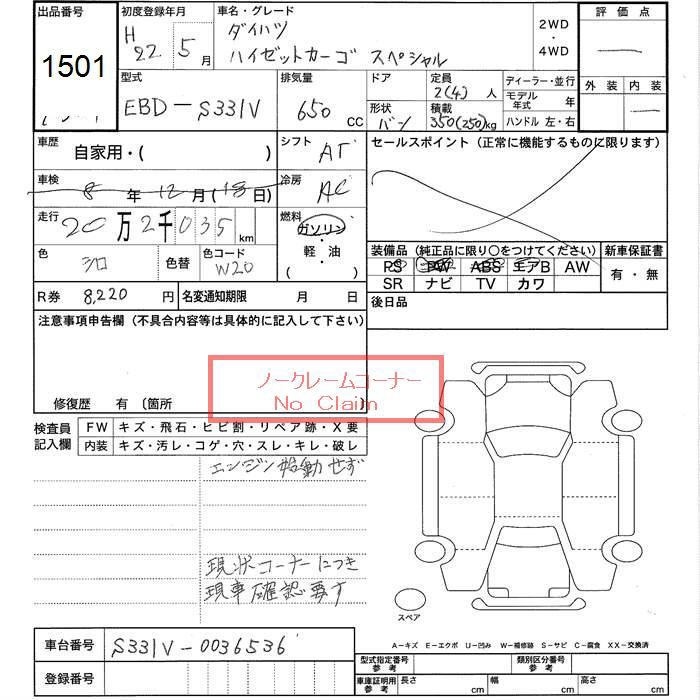 出品番号
1501
初度登録年月
H 22 5月
車名・グレード
ダイハツ
ハイゼットカーゴ スペシャル
2WD
・
4WD
評価点
外装 内装
型式
EBD-S331V
排気量
650 CC
ドア
形状
バン
定員
2(4)人
積載
350(250)kg
ディーラー・並行
モデル年式 年
ハンドル 左・右
車歴
自家用・( )
シフト
AT
セールスポイント (正常に機能するものに限ります)
車検
8年12月(18日)
冷房
AC
走行
20万2千035km
燃料
ガソリン
・
軽・油
( )
色
シロ
色替
色コード
W20
装備品 (純正品に限り○をつけてください)
新車保証書
PS PW ABS エアB AW
SR ナビ TV カワ
有・無
R券 8,220円
名変通知期限 月 日
後日品
注意事項申告欄 (不具合内容等は具体的に記入して下さい)
ノークレームコーナー
No Claim
修復歴 有 〔箇所 〕
検査員記入欄
FW キズ・飛石・ヒビ割・リペア跡・X要
内装 キズ・汚レ・コゲ・穴・スレ・キレ・破レ
エンジン始動せず
現状コーナーにつき
現車確認要す
スペア
A−キズ E−エクボ U−凹み W−補修跡 S−サビ C−腐食 XX−交換済
車台番号 S331V-0036536
登録番号
型式指定番号 参考
類別区分番号 参考
車庫証明用 参考
長さ cm
幅 cm
高さ cm